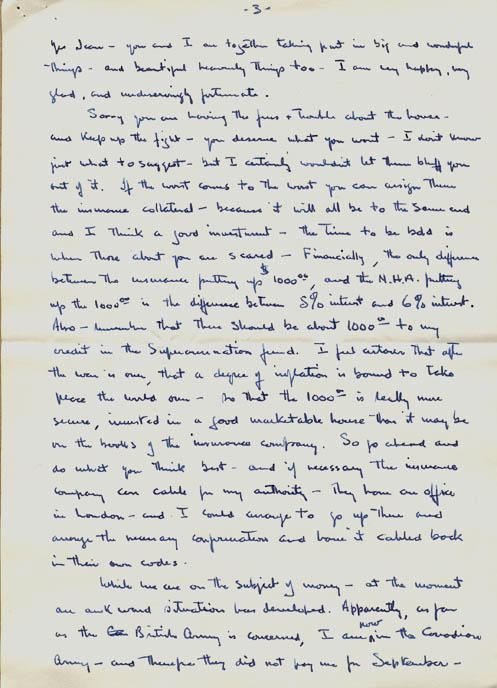 - 3 -
Yes Jean - you and I are together taking part in big and wonderful
things - and beautiful heavenly things too - I am very happy, very
glad, and undeservingly fortunate.
Sorry you are having the fuss + trouble about the house -
and keep up the fight - you deserve what you want - I don't know
just what to suggest - but I certainly wouldn't let them bluff you
out of it. If the worst comes to the worst you can assign them
the insurance collateral - because it will all be to the same end
and I think a good investment - the time to be bold is
when those about you are scared - Financially, the only difference
between the insurance putting up $1000.00, and the N.H.A. putting
up the 1000.00 is the difference between 5% interest and 6% interest.
Also - remember that there should be about 1000.00 to my
credit in the Superannuation fund. I feel certain that after
the war is over, that a degree of inflation is bound to take
place the world over - so that the 1000.00 is really more
secure, invested in a good marketable house than it may be
on the books of the insurance company. So go ahead and
do what you think best - and if necessary the insurance
company can cable for my authority - they have an office
in London - and I could arrange to go up there and
arrange the necessary confirmation and have it cabled back
in their own codes.
While we are on the subject of money - at the moment
an awkward situation has developed. Apparently, as far
as the British Army is concerned, I am now in the Canadian
Army - and therefore they did not pay me for September -